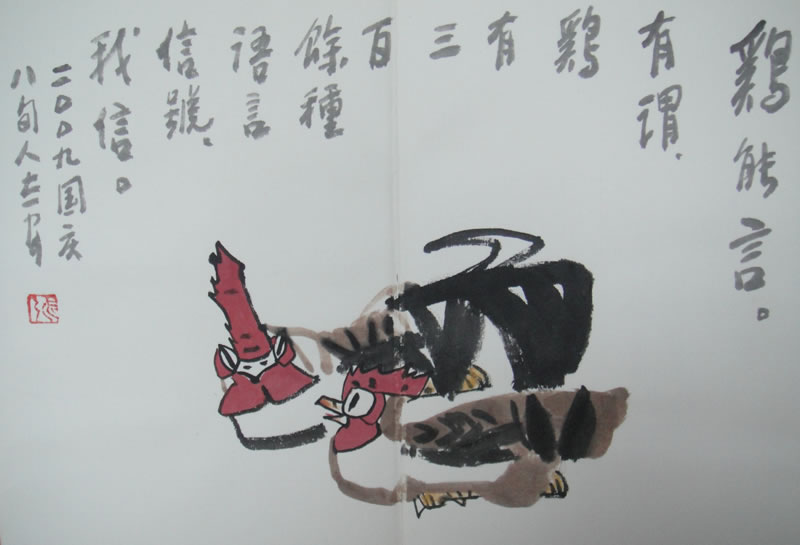 鷄能言。
有謂、
鷄
有
三
百
餘種
語言
信號、
我信。
二〇〇九国庆
八旬人
張